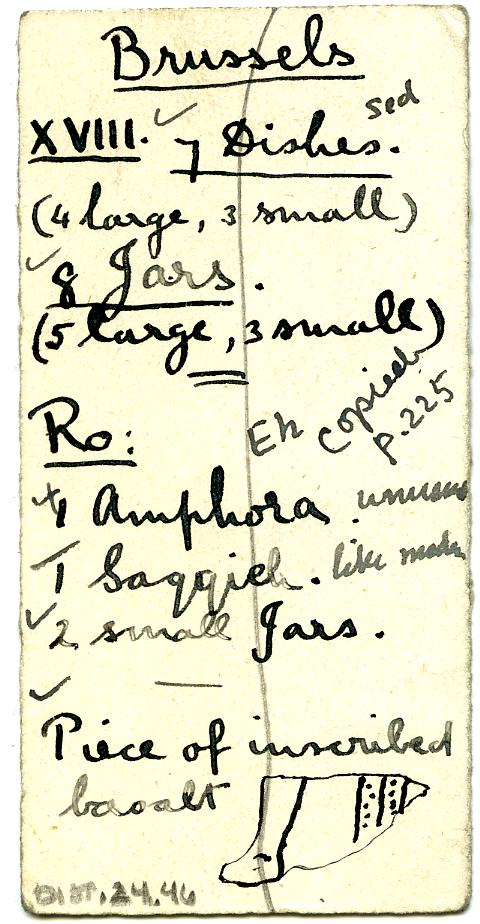 Brussels
XVIII. 7 Dishes. sed
(4 large, 3 small)
8 Jars.
(5 large, 3 small)
copied
p. 225
Ro:
1 Amphora. unusual
1 Saqqieh. like modern
2 small Jars.
Piece of inscribed
basalt
DIST.24.46